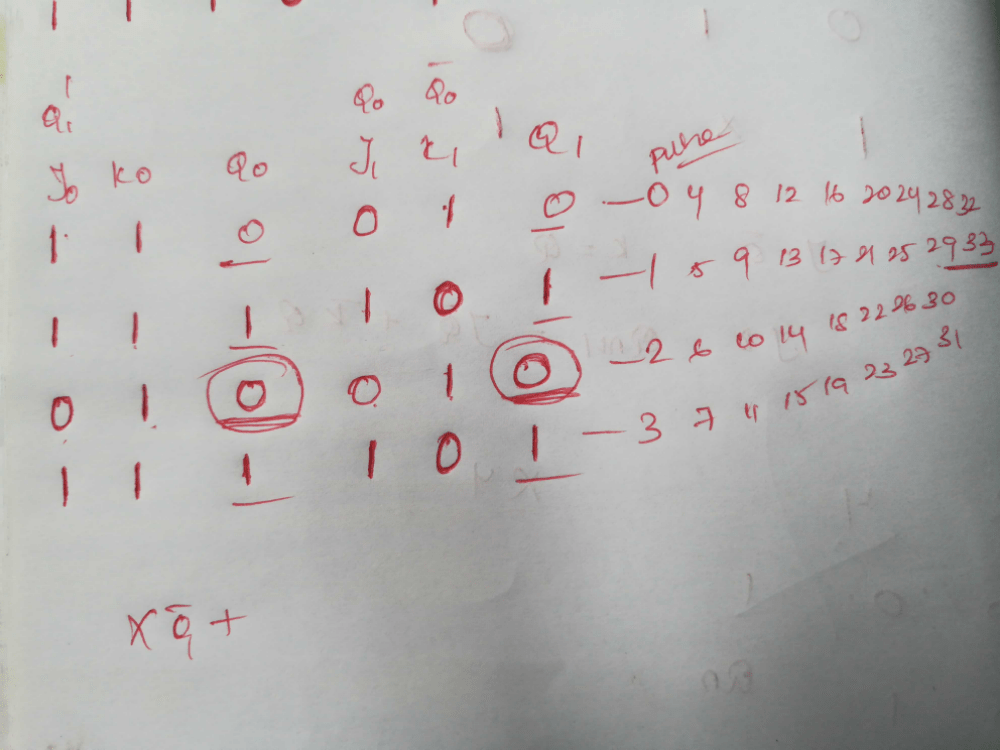 Q₁' Q₀ Q̅₀
J₀ K₀ Q₀ J₁ K₁ Q₁ pulse
1 1 0 0 1 0 — 0 4 8 12 16 20 24 28 32
1 1 1 1 0 1 — 1 5 9 13 17 21 25 29 33
0 1 0 0 1 0 — 2 6 10 14 18 22 26 30
1 1 1 1 0 1 — 3 7 11 15 19 23 27 31
X Q̅₁ +